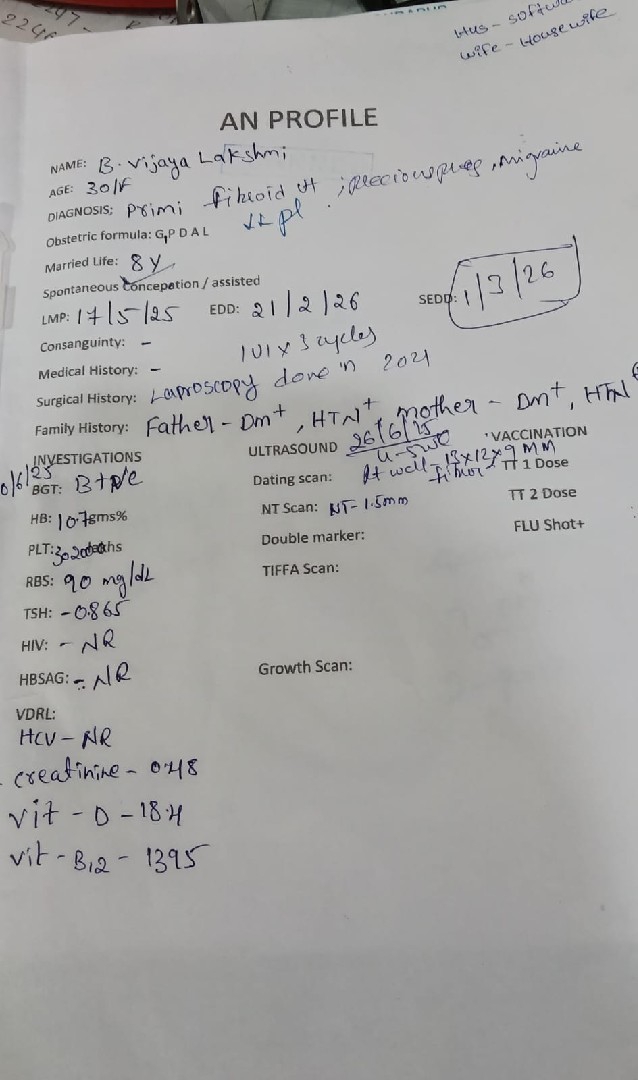 Hus - softwa
wife - Housewife
AN PROFILE
NAME: B. Vijaya Lakshmi
AGE: 30/F
DIAGNOSIS: Primi fibroid ut ; precious preg , migraine
Obstetric formula: G,P D A L
Married Life: 8 Y
Spontaneous Concepation / assisted
LMP: 17/5/25 EDD: 21/2/26 SEDD: 1/3/26
Consanguinty: -
IUI x 3 cycles
Medical History: -
Surgical History: Laproscopy done in 2021
Family History: Father - Dm+, HTN+, mother - Dm+, HTN
INVESTIGATIONS ULTRASOUND 26/6/25 VACCINATION
BGT: B+ve Dating scan: 13x12x9MM TT 1 Dose
HB: 10.7gms% NT Scan: NT- 1.5mm TT 2 Dose
PLT: Double marker: FLU Shot+
RBS: 90 mg/dL TIFFA Scan:
TSH: - 0.865
HIV: - NR
HBSAG: - NR Growth Scan:
VDRL:
HCV - NR
creatinine - 0.48
vit - D - 18.4
vit - B12 - 1395